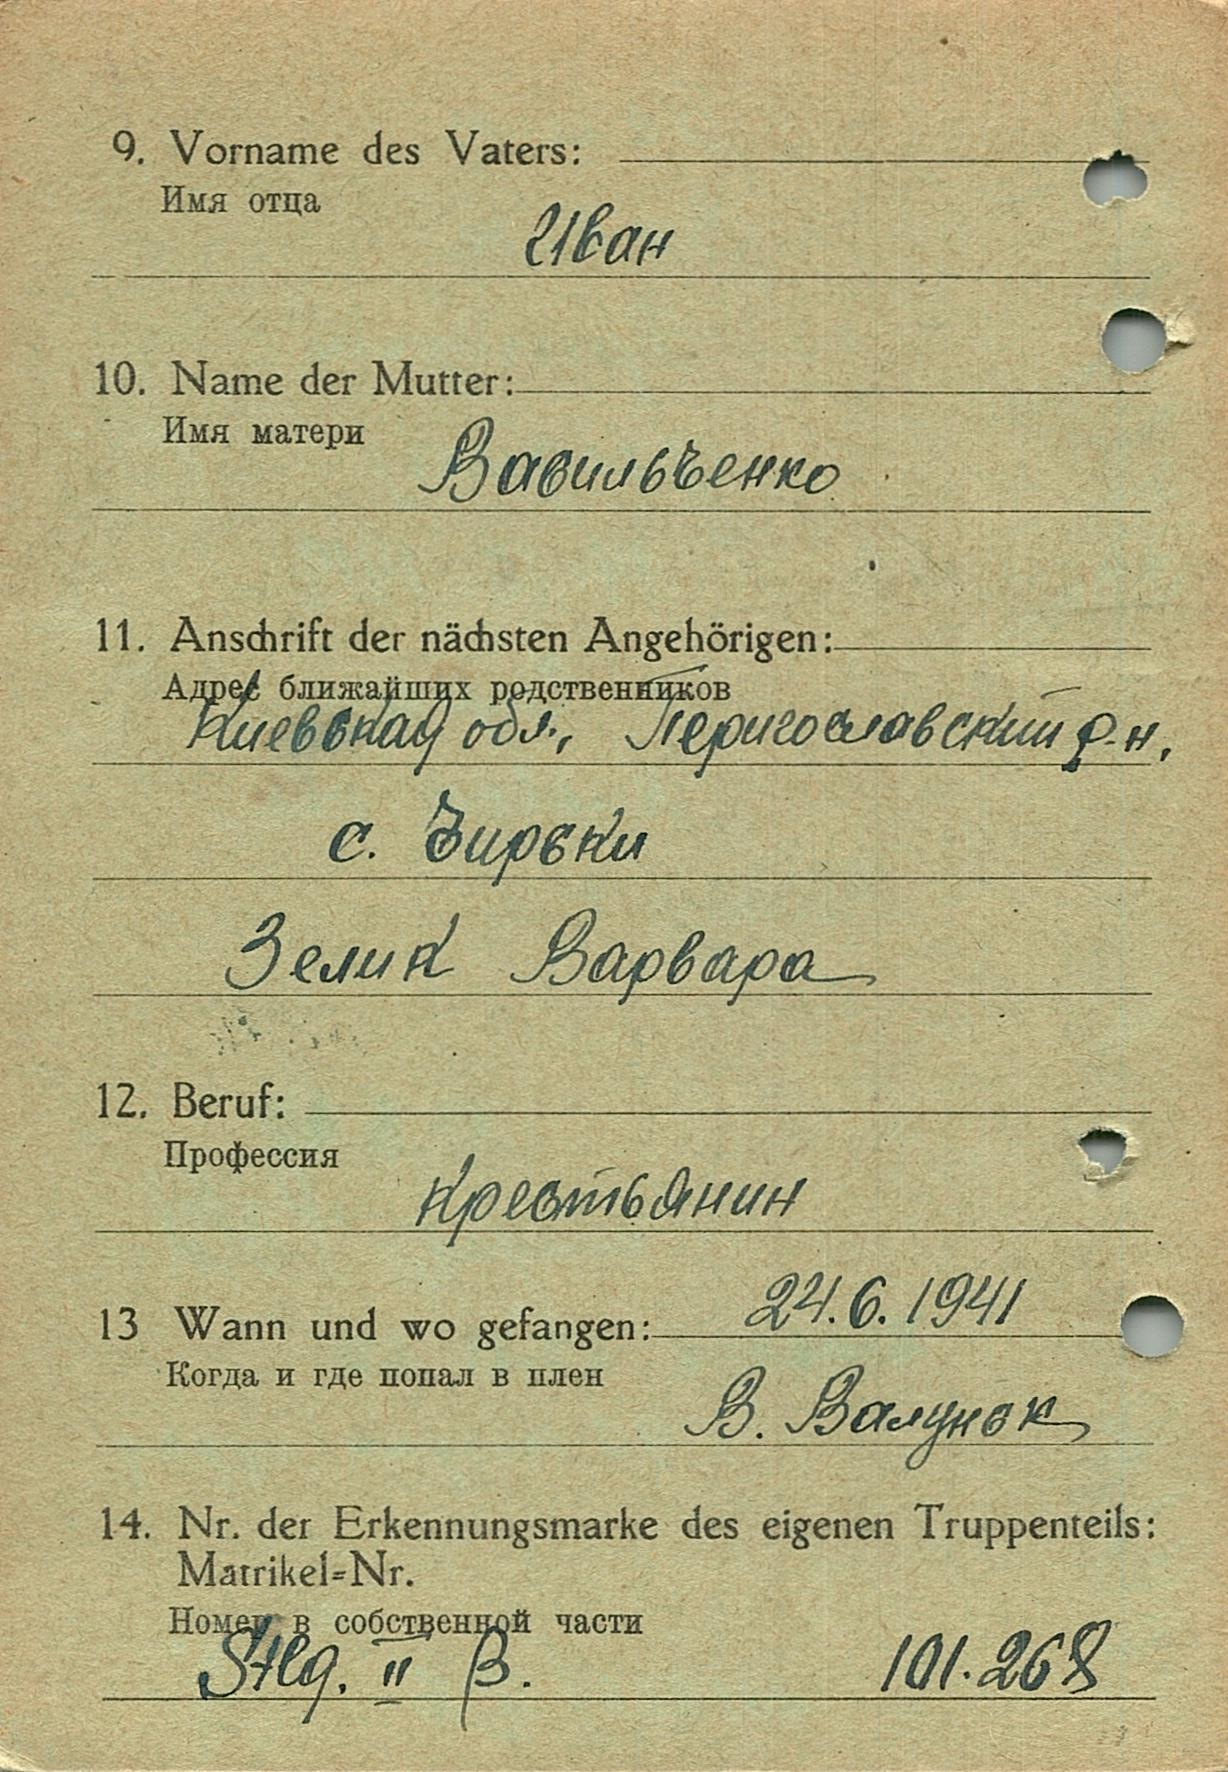 9. Vorname des Vaters:
Имя отца
Иван
10. Name der Mutter:
Имя матери
Васильченко
11. Anschrift der nächsten Angehörigen:
Адрес ближайших родственников
Киевская обл., Перигославский р-н,
с. Чирски
Зелик Варвара
12. Beruf:
Профессия
Крестьянин
13 Wann und wo gefangen: 24.6.1941
Когда и где попал в плен
В. Валунск
14. Nr. der Erkennungsmarke des eigenen Truppenteils:
Matrikel=Nr.
Номер в собственной части
Stlg. II B. 101.268